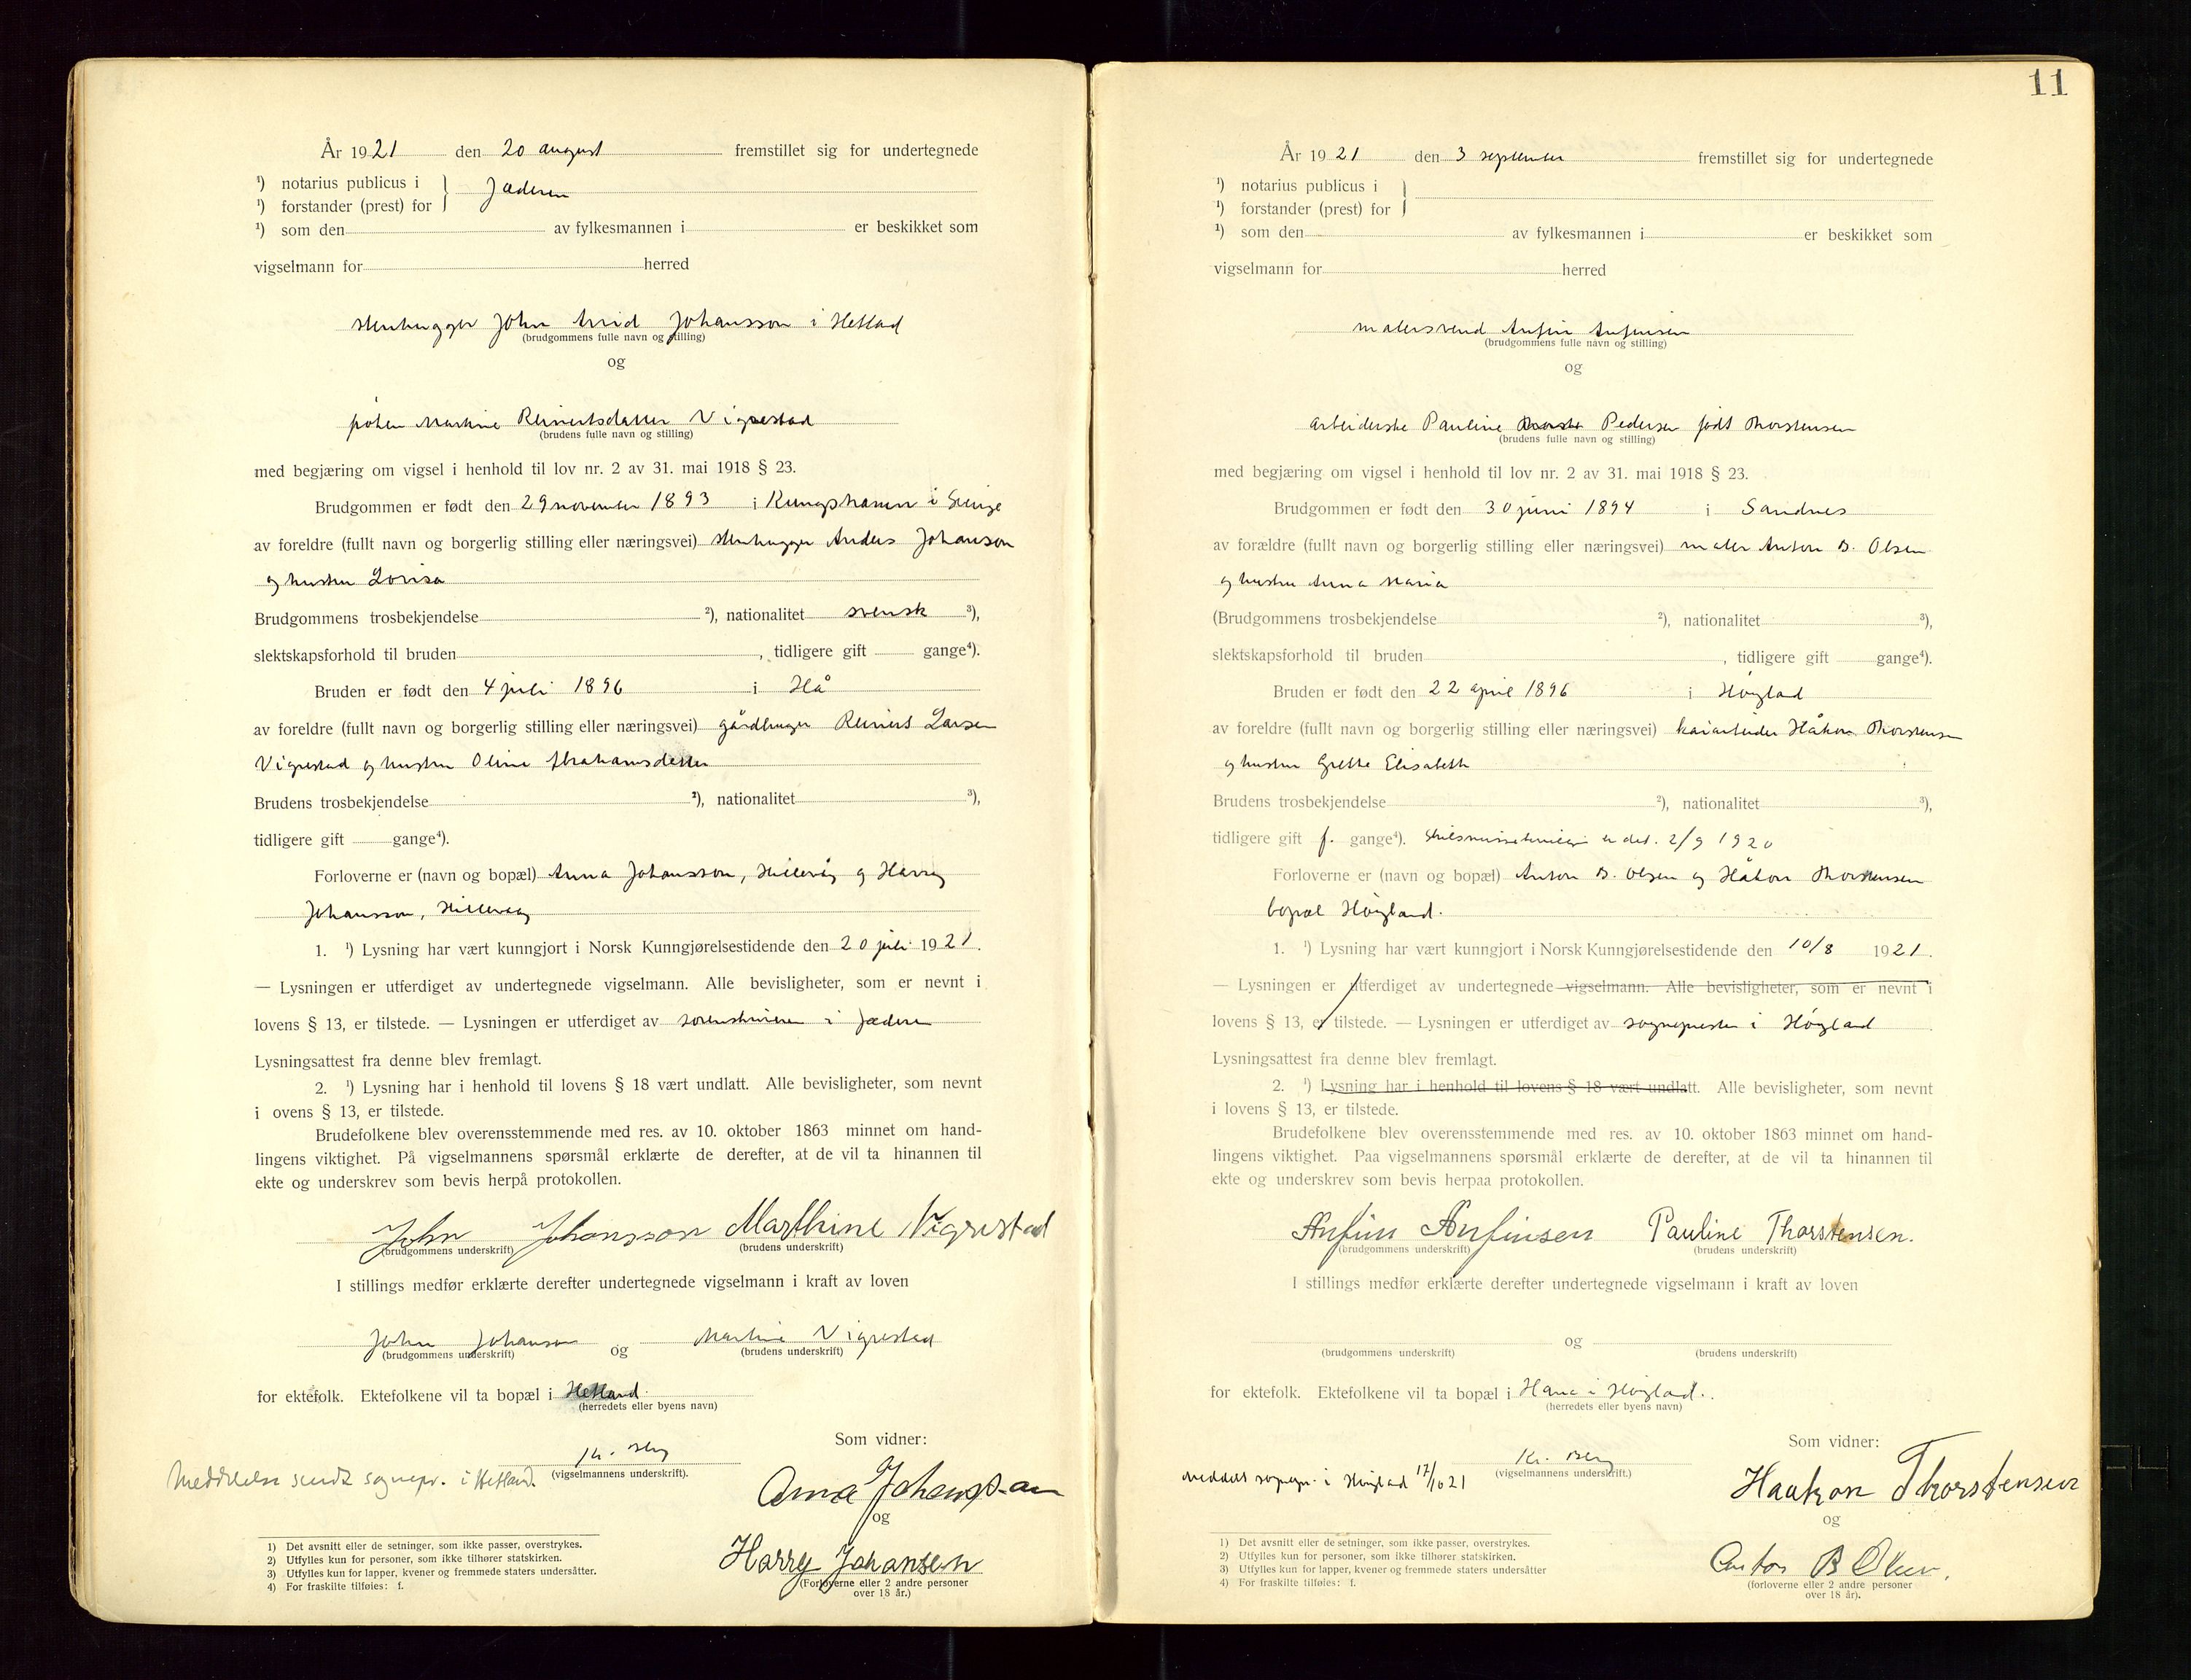 År 1921 den 20 august fremstillet sig for undertegnede
¹) notarius publicus i
¹) forstander (prest) for } Jæderen
¹) som den av fylkesmannen i er beskikket som
vigselmann for herred
stenhugger John Arvid Johansson i Hetland
(brudgommens fulle navn og stilling)
og
frøken Martine Reinertsdatter Vigrestad
(brudens fulle navn og stilling)
med begjæring om vigsel i henhold til lov nr. 2 av 31. mai 1918 § 23.
Brudgommen er født den 29 november 1893 i Kungshamn i Sverige
av foreldre (fullt navn og borgerlig stilling eller næringsvei) stenhugger Anders Johanson
og hustru Lovisa
Brudgommens trosbekjendelse ²), nationalitet svensk ³),
slektskapsforhold til bruden , tidligere gift gange⁴).
Bruden er født den 4 juli 1896 i Hå
av foreldre (fullt navn og borgerlig stilling eller næringsvei) gårdbruger Reinert Larsen
Vigrestad og hustru Oline Abrahamsdatter
Brudens trosbekjendelse ²), nationalitet ³),
tidligere gift gange⁴).
Forloverne er (navn og bopæl) Anna Johansson, Hillevåg og Harry
Johansson, Hillevaag
1. ¹) Lysning har vært kunngjort i Norsk Kunngjørelsestidende den 20 juli 1921.
— Lysningen er utferdiget av undertegnede vigselmann. Alle bevisligheter, som er nevnt i
lovens § 13, er tilstede. — Lysningen er utferdiget av sorenskriveren i Jæderen
Lysningsattest fra denne blev fremlagt.
2. ¹) Lysning har i henhold til lovens § 18 vært undlatt. Alle bevisligheter, som nevnt
i ovens § 13, er tilstede.
Brudefolkene blev overensstemmende med res. av 10. oktober 1863 minnet om hand-
lingens viktighet. På vigselmannens spørsmål erklærte de derefter, at de vil ta hinannen til
ekte og underskrev som bevis herpå protokollen.
John Johansson Marthine Vigrestad
(brudgommens underskrift) (brudens underskrift)
I stillings medfør erklærte derefter undertegnede vigselmann i kraft av loven
John Johanson og Martine Vigrestad
(brudgommens underskrift) (brudens underskrift)
for ektefolk. Ektefolkene vil ta bopæl i Hetland.
(herredets eller byens navn)
Kr. Berg
(vigselmannens underskrift).
Meddelelse sendt sognepr. i Hetland.
Som vidner:
Anna Johansson
og
Harry Johansen
(Forloverne eller 2 andre personer
over 18 år.)
1) Det avsnitt eller de setninger, som ikke passer, overstrykes.
2) Utfylles kun for personer, som ikke tilhører statskirken.
3) Utfylles kun for lapper, kvener og fremmede staters undersåtter.
4) For fraskilte tilføies: f.
11
År 1921 den 3 september fremstillet sig for undertegnede
¹) notarius publicus i
¹) forstander (prest) for }
¹) som den av fylkesmannen i er beskikket som
vigselmann for herred
malersvend Anfin Anfinsen
(brudgommens fulle navn og stilling)
og
arbeiderske Pauline Pedersen født Thorstensen
(brudens fulle navn og stilling)
med begjæring om vigsel i henhold til lov nr. 2 av 31. mai 1918 § 23.
Brudgommen er født den 30 juni 1894 i Sandnes
av forældre (fullt navn og borgerlig stilling eller næringsvei) maler Anton B. Olsen
og hustru Anna Maria
(Brudgommens trosbekjendelse ²), nationalitet ³),
slektskapsforhold til bruden , tidligere gift gange⁴).
Bruden er født den 22 april 1896 i Høyland
av foreldre (fullt navn og borgerlig stilling eller næringsvei) kaiarbeider Håkon Thorstensen
og hustru Grethe Elisabeth
Brudens trosbekjendelse ²), nationalitet ³),
tidligere gift f. gange⁴). Skilsmissebevilgn er dat. 2/9 1920
Forloverne er (navn og bopæl) Anton B. Olsen og Håkon Thorstensen
bopæl Høyland.
1. ¹) Lysning har vært kunngjort i Norsk Kunngjørelsestidende den 10/8 1921.
— Lysningen er utferdiget av undertegnede vigselmann. Alle bevisligheter, som er nevnt i
lovens § 13, er tilstede. — Lysningen er utferdiget av sognepresten i Høyland
Lysningsattest fra denne blev fremlagt.
2. ¹) Lysning har i henhold til lovens § 18 vært undlatt. Alle bevisligheter, som nevnt
i lovens § 13, er tilstede.
Brudefolkene blev overensstemmende med res. av 10. oktober 1863 minnet om hand-
lingens viktighet. Paa vigselmannens spørsmål erklærte de derefter, at de vil ta hinannen til
ekte og underskrev som bevis herpaa protokollen.
Anfin Anfinsen Pauline Thorstensen.
(brudgommens underskrift) (brudens underskrift)
I stillings medfør erklærte derefter undertegnede vigselmann i kraft av loven
og
(brudgommens underskrift) (brudens underskrift)
for ektefolk. Ektefolkene vil ta bopæl i Hana i Høyland.
(herredets eller byens navn)
Kr. Berg
(vigselmannens underskrift.)
meddelt sognepr. i Høyland 17/10 21
Som vidner:
Haakon Thorstensen
og
Anton B Olsen.
(forloverne eller 2 andre personer
over 18 år).
1) Det avsnitt eller de setninger, som ikke passer, overstrykes.
2) Utfylles kun for personer, som ikke tilhører statskirken.
3) Utfylles kun for lapper, kvener og fremmede staters undersåtter
4) For fraskilte tilføies: f.